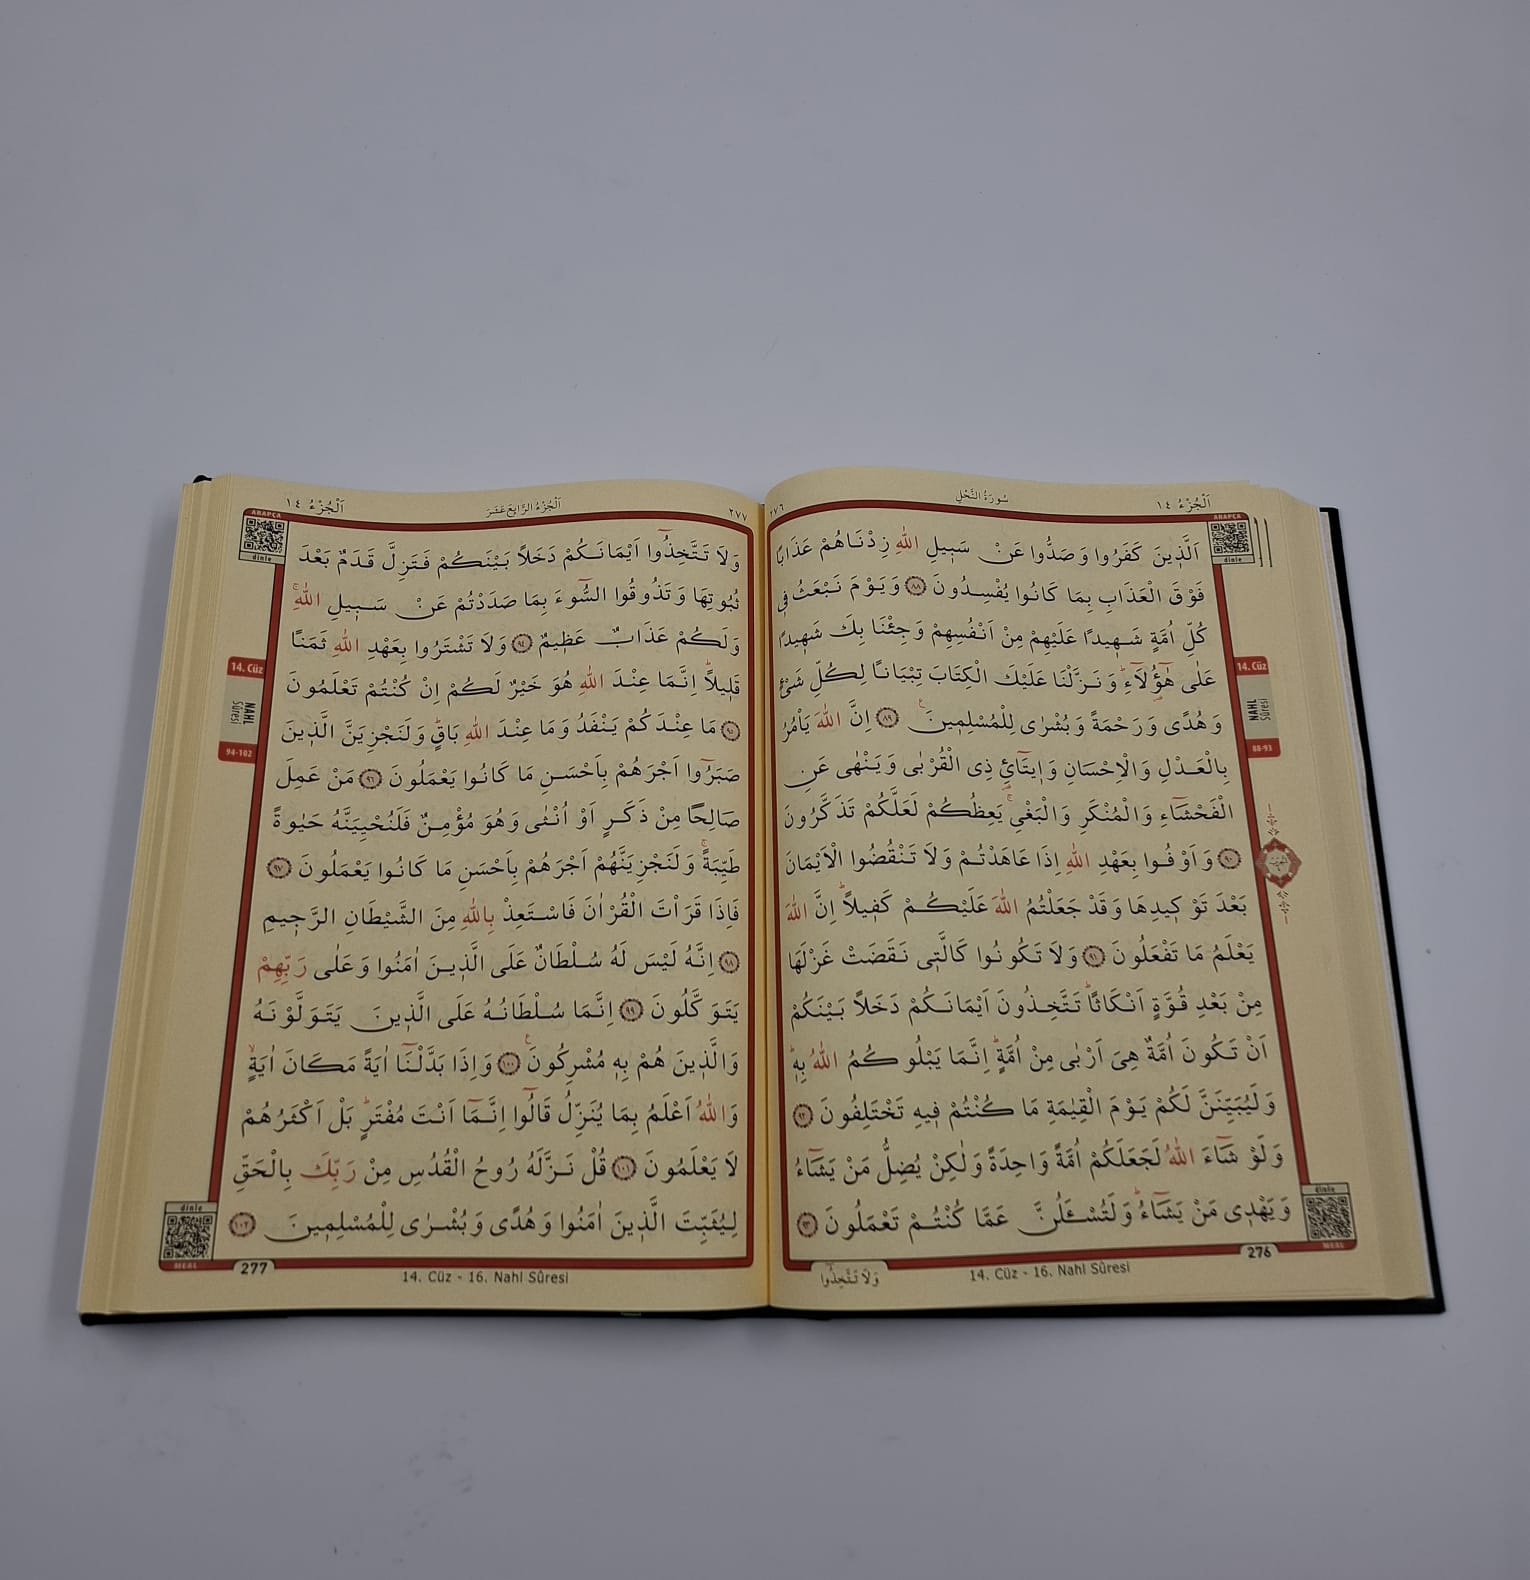 اَلْجُزْءُ ١٤
سُورَةُ النَّحْلِ
٢٧٦
ARAPÇA
dinle
اَلَّذ۪ينَ كَفَرُوا وَصَدُّوا عَنْ سَب۪يلِ اللّٰهِ زِدْنَاهُمْ عَذَابًا
فَوْقَ الْعَذَابِ بِمَا كَانُوا يُفْسِدُونَ ﴿٨٨﴾ وَيَوْمَ نَبْعَثُ ف۪ي
كُلِّ اُمَّةٍ شَه۪يدًا عَلَيْهِمْ مِنْ اَنْفُسِهِمْ وَجِئْنَا بِكَ شَه۪يدًا
عَلٰى هٰٓؤُ۬لَٓاءِۜ وَنَزَّلْنَا عَلَيْكَ الْكِتَابَ تِبْيَانًا لِكُلِّ شَيْءٍ
وَهُدًى وَرَحْمَةً وَبُشْرٰى لِلْمُسْلِم۪ينَ۟ ﴿٨٩﴾ اِنَّ اللّٰهَ يَأْمُرُ
بِالْعَدْلِ وَالْاِحْسَانِ وَا۪يتَٓائِ ذِي الْقُرْبٰى وَيَنْهٰى عَنِ
الْفَحْشَٓاءِ وَالْمُنْكَرِ وَالْبَغْيِۚ يَعِظُكُمْ لَعَلَّكُمْ تَذَكَّرُونَ
﴿٩٠﴾ وَاَوْفُوا بِعَهْدِ اللّٰهِ اِذَا عَاهَدْتُمْ وَلَا تَنْقُضُوا الْاَيْمَانَ
بَعْدَ تَوْك۪يدِهَا وَقَدْ جَعَلْتُمُ اللّٰهَ عَلَيْكُمْ كَف۪يلًاۜ اِنَّ اللّٰهَ
يَعْلَمُ مَا تَفْعَلُونَ ﴿٩١﴾ وَلَا تَكُونُوا كَالَّت۪ي نَقَضَتْ غَزْلَهَا
مِنْ بَعْدِ قُوَّةٍ اَنْكَاثًاۜ تَتَّخِذُونَ اَيْمَانَكُمْ دَخَلًا بَيْنَكُمْ
اَنْ تَكُونَ اُمَّةٌ هِيَ اَرْبٰى مِنْ اُمَّةٍۜ اِنَّمَا يَبْلُوكُمُ اللّٰهُ بِه۪ۜ
وَلَيُبَيِّنَنَّ لَكُمْ يَوْمَ الْقِيٰمَةِ مَا كُنْتُمْ ف۪يهِ تَخْتَلِفُونَ ﴿٩٢﴾
وَلَوْ شَٓاءَ اللّٰهُ لَجَعَلَكُمْ اُمَّةً وَاحِدَةً وَلٰكِنْ يُضِلُّ مَنْ يَشَٓاءُ
وَيَهْد۪ي مَنْ يَشَٓاءُۜ وَلَتُسْـَٔلُنَّ عَمَّا كُنْتُمْ تَعْمَلُونَ ﴿٩٣﴾
14. Cüz
NAHL
Sûresi
88-93
dinle
MEAL
276
14. Cüz - 16. Nahl Sûresi
وَلَا تَتَّخِذُٓوا
اَلْجُزْءُ ١٤
اَلْجُزْءُ الرَّابِعَ عَشَرَ
٢٧٧
ARAPÇA
dinle
وَلَا تَتَّخِذُٓوا اَيْمَانَكُمْ دَخَلًا بَيْنَكُمْ فَتَزِلَّ قَدَمٌ بَعْدَ
ثُبُوتِهَا وَتَذُوقُوا السُّٓوءَ بِمَا صَدَدْتُمْ عَنْ سَب۪يلِ اللّٰهِۚ
وَلَكُمْ عَذَابٌ عَظ۪يمٌ ﴿٩٤﴾ وَلَا تَشْتَرُوا بِعَهْدِ اللّٰهِ ثَمَنًا
قَل۪يلًاۜ اِنَّمَا عِنْدَ اللّٰهِ هُوَ خَيْرٌ لَكُمْ اِنْ كُنْتُمْ تَعْلَمُونَ
﴿٩٥﴾ مَا عِنْدَكُمْ يَنْفَدُ وَمَا عِنْدَ اللّٰهِ بَاقٍۜ وَلَنَجْزِيَنَّ الَّذ۪ينَ
صَبَرُٓوا اَجْرَهُمْ بِاَحْسَنِ مَا كَانُوا يَعْمَلُونَ ﴿٩٦﴾ مَنْ عَمِلَ
صَالِحًا مِنْ ذَكَرٍ اَوْ اُنْثٰى وَهُوَ مُؤْمِنٌ فَلَنُحْيِيَنَّهُ حَيٰوةً
طَيِّبَةًۚ وَلَنَجْزِيَنَّهُمْ اَجْرَهُمْ بِاَحْسَنِ مَا كَانُوا يَعْمَلُونَ ﴿٩٧﴾
فَاِذَا قَرَأْتَ الْقُرْاٰنَ فَاسْتَعِذْ بِاللّٰهِ مِنَ الشَّيْطَانِ الرَّج۪يمِ
﴿٩٨﴾ اِنَّهُ لَيْسَ لَهُ سُلْطَانٌ عَلَى الَّذ۪ينَ اٰمَنُوا وَعَلٰى رَبِّهِمْ
يَتَوَكَّلُونَ ﴿٩٩﴾ اِنَّمَا سُلْطَانُهُ عَلَى الَّذ۪ينَ يَتَوَلَّوْنَهُ
وَالَّذ۪ينَ هُمْ بِه۪ مُشْرِكُونَ۟ ﴿١٠٠﴾ وَاِذَا بَدَّلْنَٓا اٰيَةً مَكَانَ اٰيَةٍۙ
وَاللّٰهُ اَعْلَمُ بِمَا يُنَزِّلُ قَالُٓوا اِنَّمَٓا اَنْتَ مُفْتَرٍۜ بَلْ اَكْثَرُهُمْ
لَا يَعْلَمُونَ ﴿١٠١﴾ قُلْ نَزَّلَهُ رُوحُ الْقُدُسِ مِنْ رَبِّكَ بِالْحَقِّ
لِيُثَبِّتَ الَّذ۪ينَ اٰمَنُوا وَهُدًى وَبُشْرٰى لِلْمُسْلِم۪ينَ ﴿١٠٢﴾
14. Cüz
NAHL
Sûresi
94-102
dinle
MEAL
277
14. Cüz - 16. Nahl Sûresi